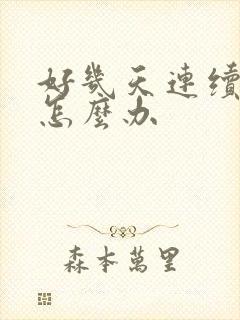 好幾天連續
怎麼办
森本萬里